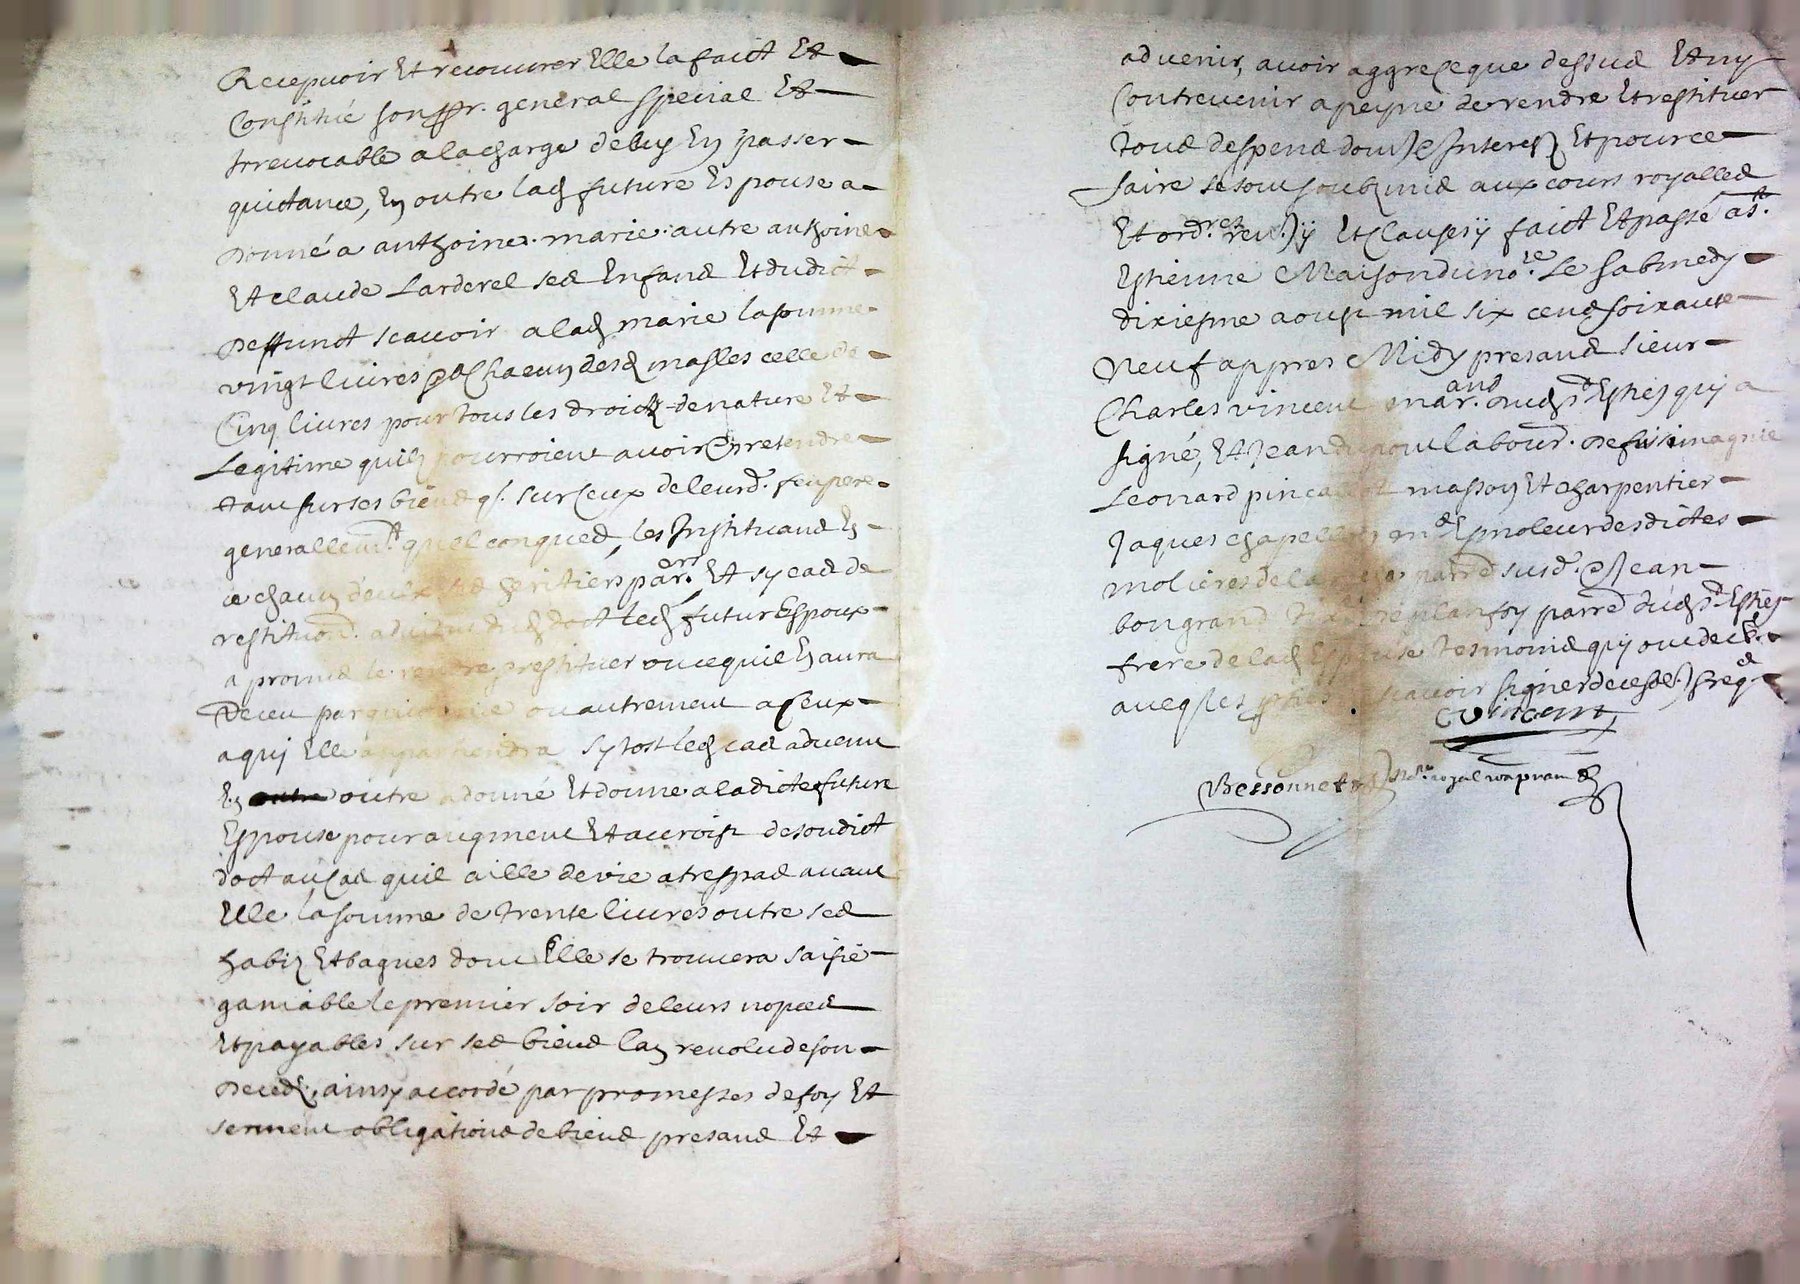 Recepvoir Et recouvrer Elle la faict Et
Constitué son pr. general special Et
Irrevocable a la charge de luy En passer
quictance, En outre lad future Espouse a
donné a anthoine. marie. autre anthoine
Et claude Larderel ses Enfans Et dudict
deffunct scavoir a lad marie la somme
vingt livres Chacun desd masles celle de
Cinq livres pour tous les droictz de nature Et
Legitime quilz pourroient avoir pretendre
tant sur ses biens q. sur Ceux de leurd. feu pere
generallemt. quelconques, les Instituans En
ce chacun heritiers par. Et sy cas de
restituon. led futur Espoux
a promis le rendre restituer ou ce quil En aura
Receu par quictance ou autrement a Ceux
a qui Elle appartiendra sy tost led cas advenu
En outre a donné Et donne a la dicte future
Espouse pour augment Et accroist de son dict
doct au Cas quil aille de vie a trespas avant
Elle la somme de trente livres outre ses
habiz Et bagues dont Elle se trouvera saisie
ganiable le premier soir de leurs nopces
Et payables sur ses biens lan revolu de son
deced. ainsy accordé par promesses de foy Et
serment obligations de biens presans Et
advenir, avoir aggre Ce que dessus Et ny
Contrevenir a peyne de rendre Et restituer
tous despens dom Interestz Et pour ce
faire se sont soubzmis aux cours royalles
Et ord.res Et Clauses faict Et passé a st.
Estienne Maison du no.re Le sabmedy
dixiesme aoust mil six cens soixante
Neuf appres Midy presans sieur
Charles vincent mar.and dud st Esties qui a
signé, Et Jean labour. de
Leonard pincan masson Et charpentier
Jaques chapel desdictes
molieres de la susd. Jean
bongrand parre dud st Esties
frere de lad Espouse tesmoins qui ont
avecq les scavoir signer de ce
Vincent
Bessonnet no.re royal